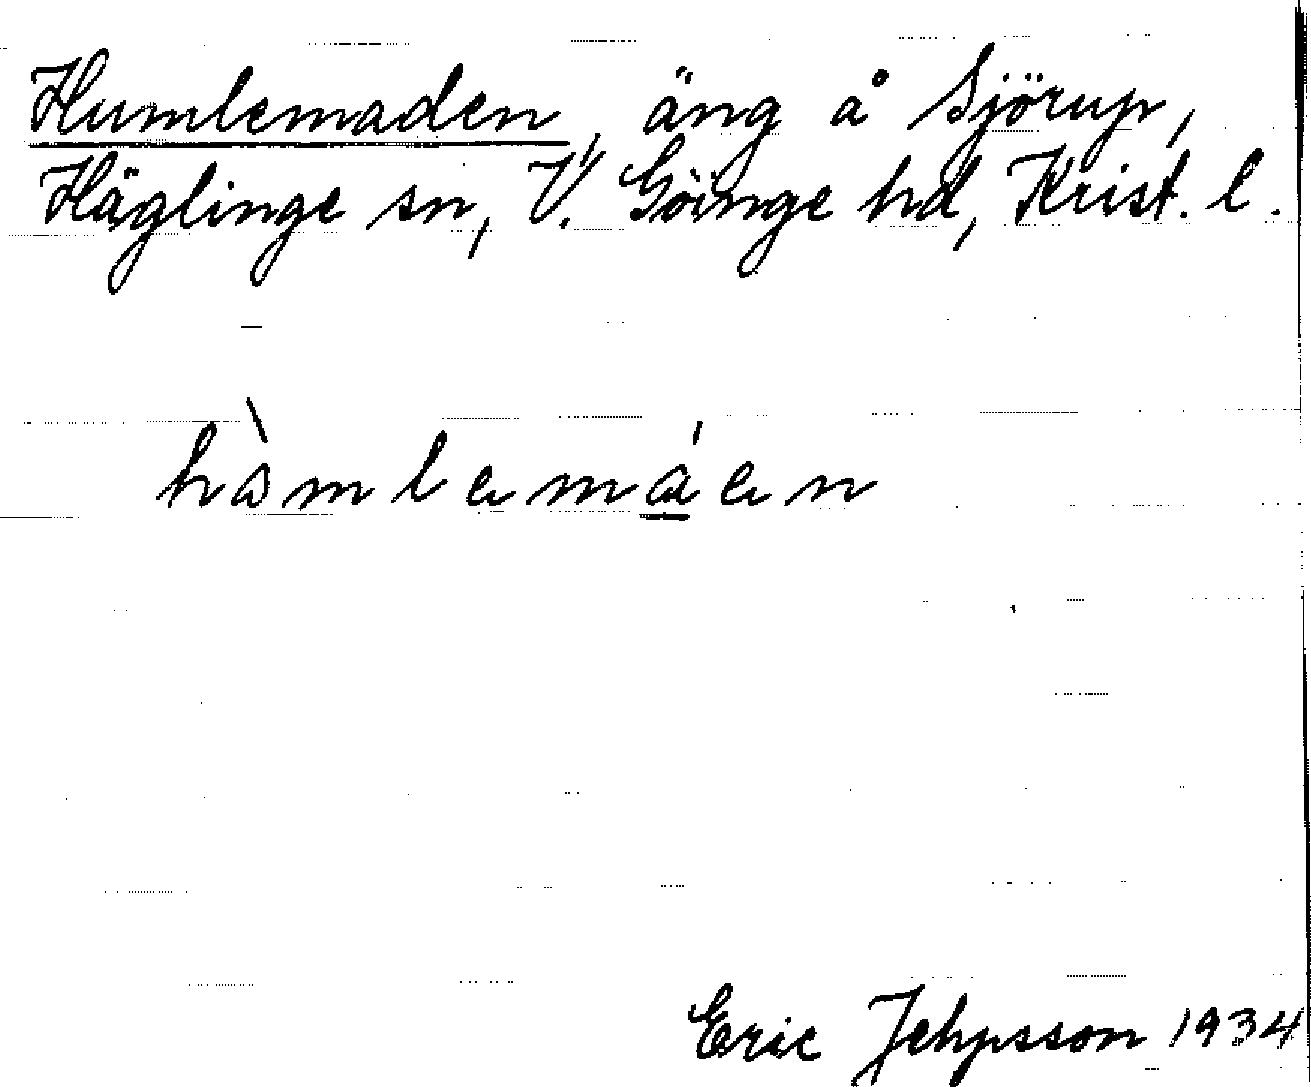 Humlemaden, äng å Sjörup,
Häglinge sn, V. Göinge hd, Krist. l.
hàmlemáen
Eric Jehpsson 1934